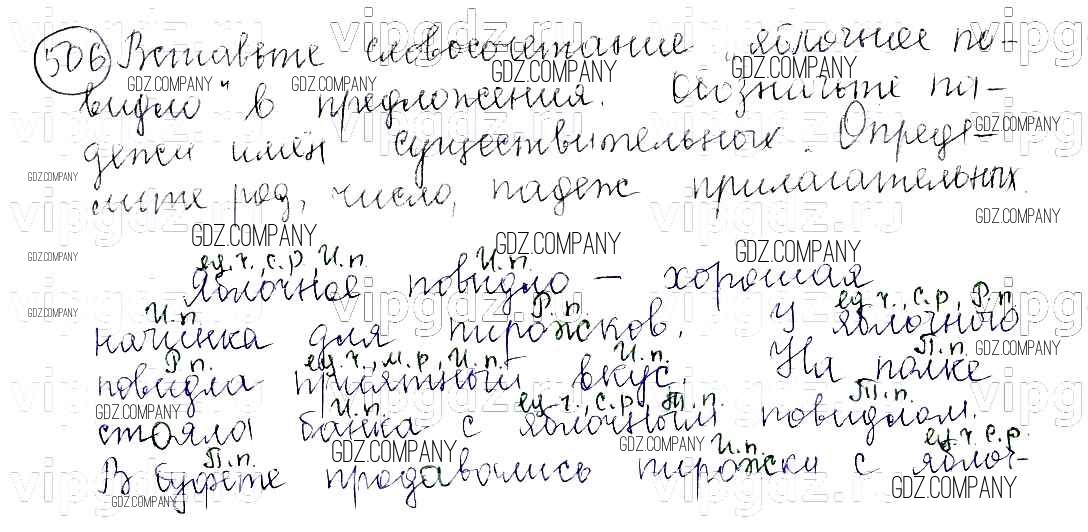 506 Вставьте словосочетание „яблочное по-
видло" в предложения. Обозначьте па-
дежи имён существительных. Опреде-
лите род, число, падеж прилагательных.
ед.ч., с.р., И.п. И.п.
Яблочное повидло – хорошая
И.п. Р.п. ед.ч., с.р., Р.п.
начинка для пирожков. У яблочного
Р.п. ед.ч., м.р., И.п. И.п. П.п.
повидла приятный вкус. На полке
И.п. ед.ч., с.р., Т.п. Т.п.
стояла банка с яблочным повидлом.
П.п. И.п. ед.ч. с.р.
В буфете продавались пирожки с яблоч-
GDZ.COMPANY
vipgdz.ru